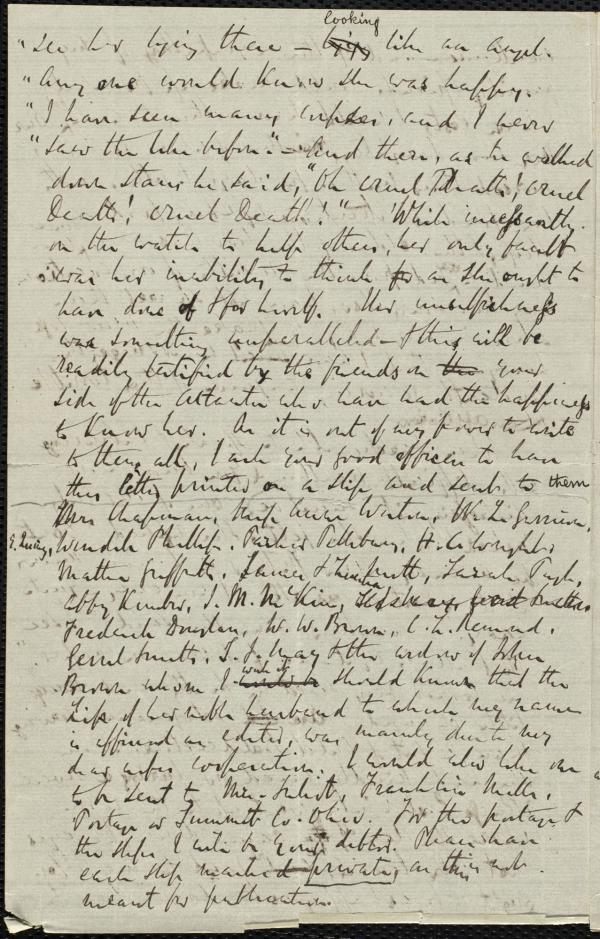 looking
"see her lying there – lying like an angel.
"Any one would know she was happy.
"I have seen many corpses, and I never
"saw the like before." – And then, as he walked
down stairs he said, "Oh cruel Death! cruel
Death! cruel Death!" While incessantly
on the watch to help others, her only fault
was her inability to think for as she ought to
have done of & for herself. Her unselfishness
was something unparalleled – & this will be
readily certified by the friends on the your
side of the Atlantic who have had the happiness
to know her. As it is out of my power to write
to them all, I ask your good offices to have
this letter printed on a slip and sent to them
Mrs Chapman, Miss Anne Weston, Wm L. Garrison,
E. Quincy, Wendell Phillips, Parker Pillsbury, H. C. Wright,
Mattie Griffith, James & Lucretia Mott, Sarah Pugh,
Abby Kimber, J. M. McKim,
Frederick Douglass, W. W. Brown, C. L. Remond,
Gerrit Smith, S. J. May & the widow of John
Brown whom I would wish should know that the
Life of her noble husband to which my name
is affixed as editor, was mainly due to my
dear wife's cooperation. I would also like one
to be sent to Mrs. , Franklin Mills,
Portage or Summit Co. Ohio. For the postage &
the slips I will be your debtor. Please have
each slip marked private, as this is not
meant for publication.